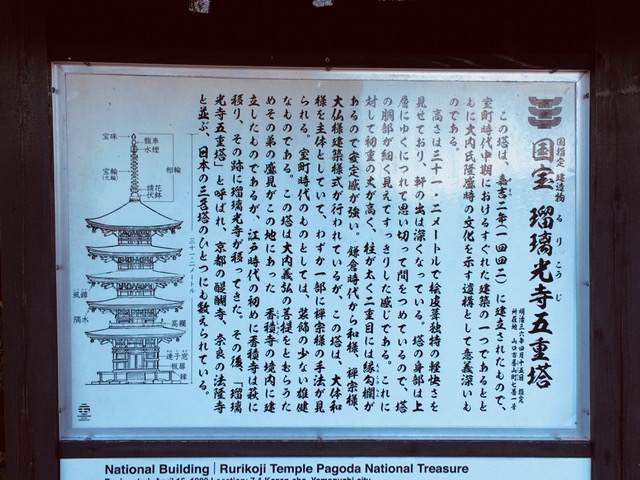 国指定 建造物
国宝 瑠璃光寺五重塔
るりこうじ
明治三六年四月十五日 指定
所在地 山口市香山町七番一号
この塔は、嘉吉二年(一四四二)に建立されたもので、
室町時代中期におけるすぐれた建築の一つであるとと
もに大内氏隆盛時の文化を示す遺構として意義深いも
のである。
高さは三十一・二メートルで桧皮葺独特の軽快さを
見せており、軒の出は深くなっている。塔の身部は上
層にゆくにつれて思い切って間をつめているので、塔
の胴部が細く見えてすっきりした感じである。これに
対して初重の丈が高く、柱が太く二重目には縁勾欄が
あるので安定感が強い。鎌倉時代から和様、禅宗様、
大仏様建築様式が行われているが、この塔は、大体和
様を主体としていて、わずか一部に禅宗様の手法が見
られる。室町時代のものとしては、装飾の少ない雄健
なものである。この塔は大内義弘の菩提をとむらうた
めその弟の盛見がこの地にあった香積寺の境内に建
立したものであるが、江戸時代の初めに香積寺は萩に
移り、その跡に瑠璃光寺が移ってきた。その後、「瑠璃
光寺五重塔」と呼ばれ、京都の醍醐寺、奈良の法隆寺
と並ぶ、日本の三名塔のひとつにも数えられている。
宝珠
龍車
水煙
相輪
宝輪
(九輪)
請花
伏鉢
三十一・二メートル
風鐸
隅木
高欄
連子窓
板扉
縁
National Building | Rurikoji Temple Pagoda National Treasure